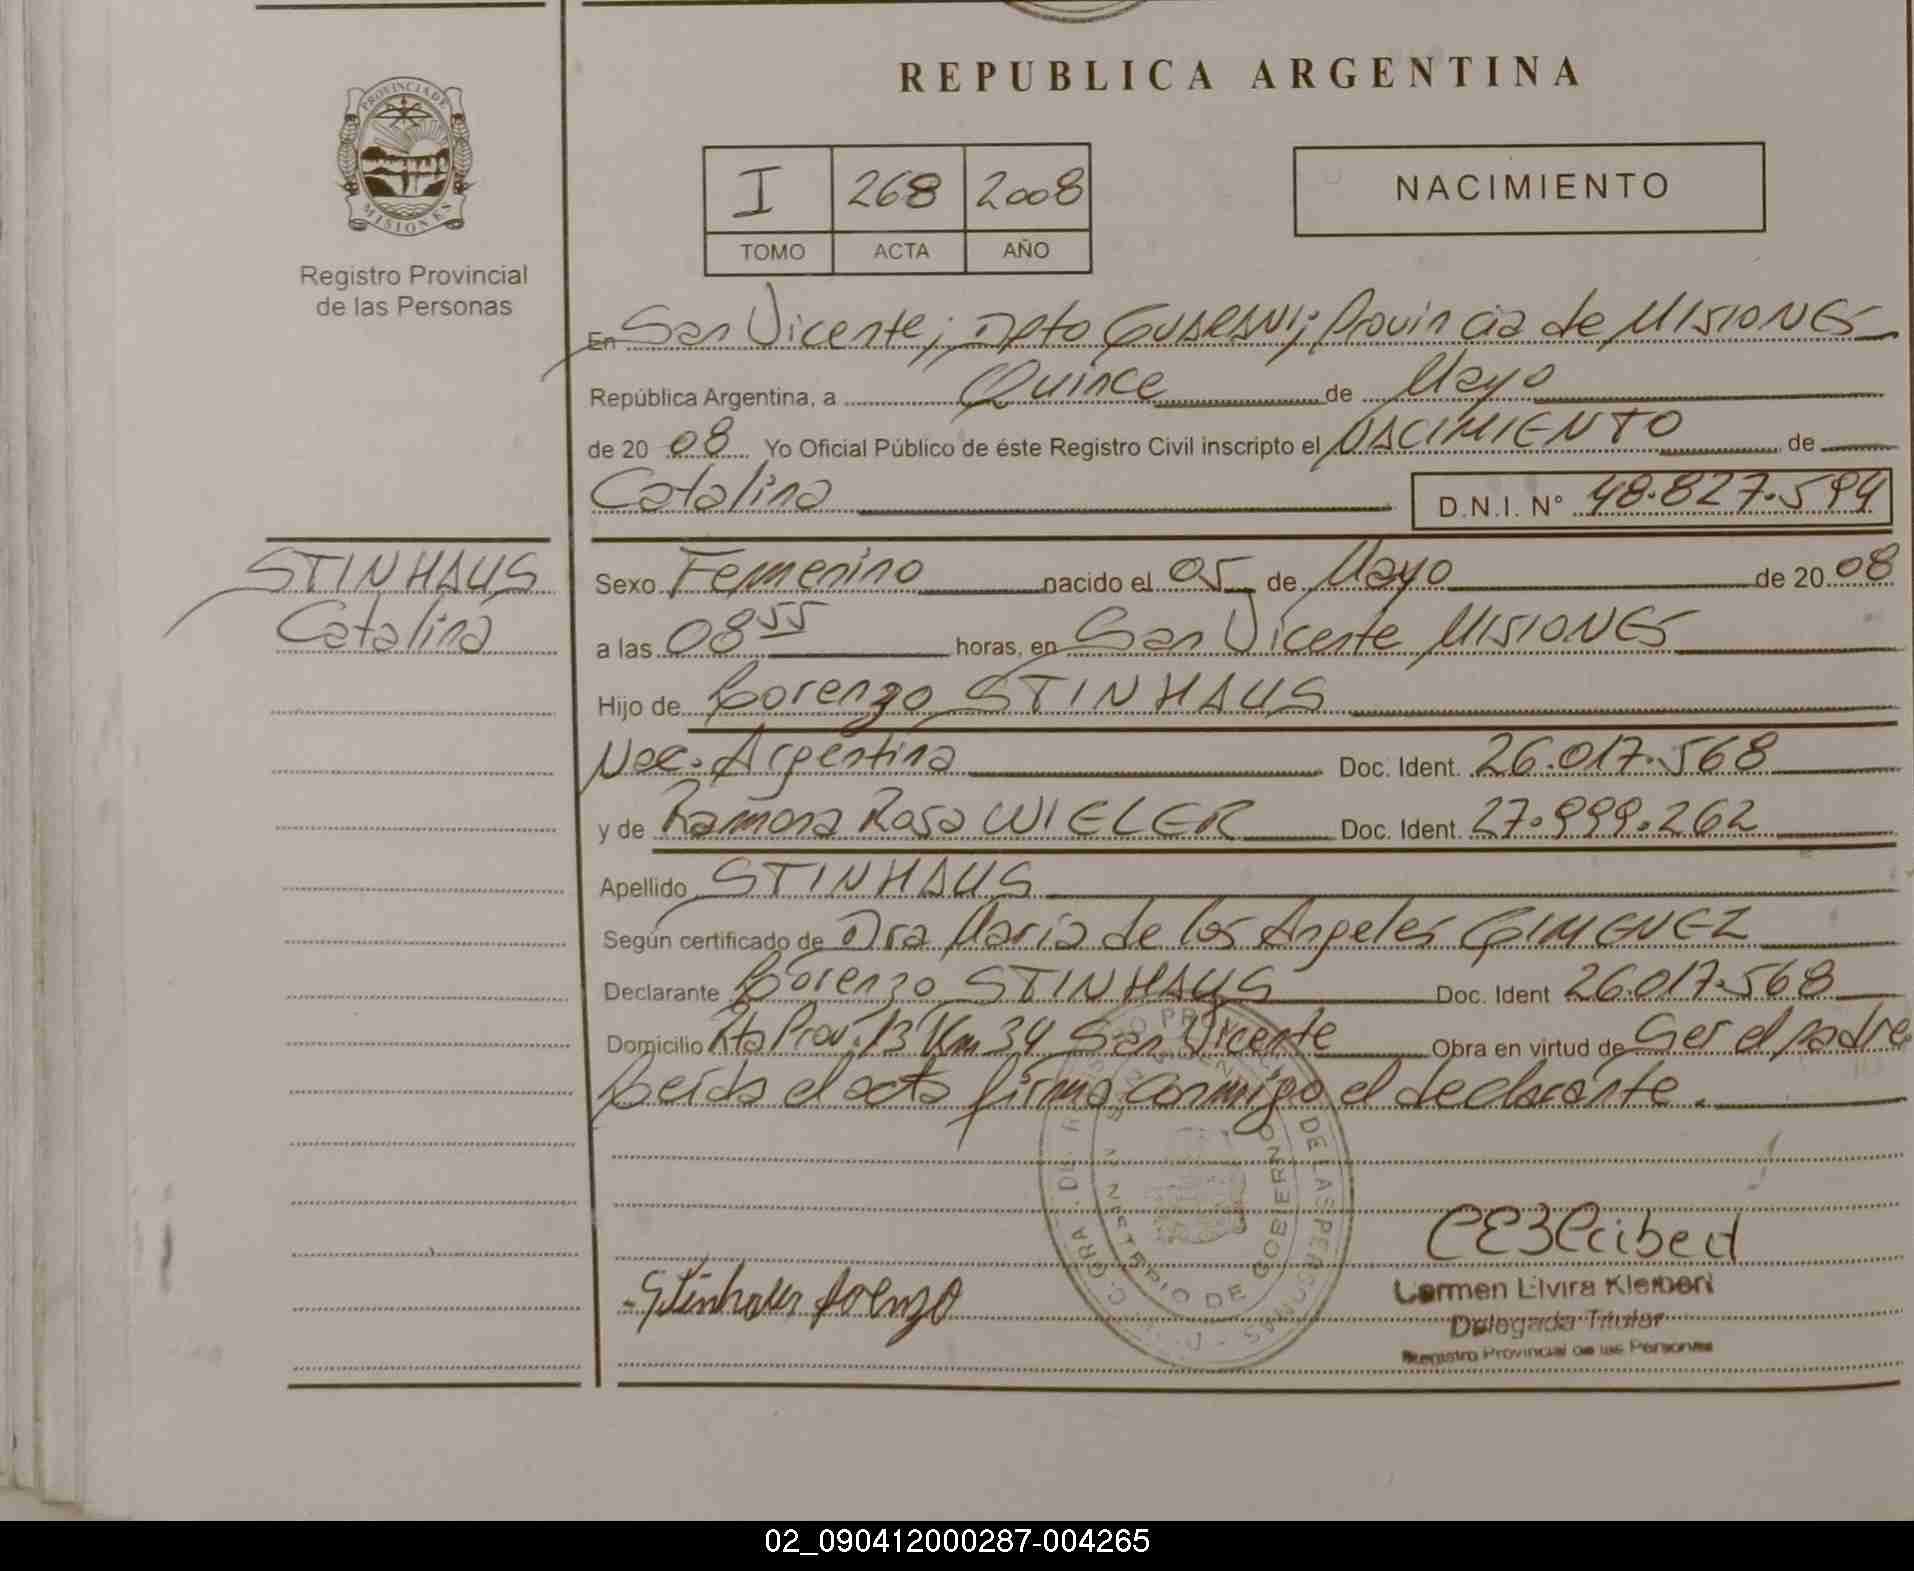 PROVINCIA DE
MISIONES
Registro Provincial
de las Personas
REPUBLICA ARGENTINA
I 268 2008
TOMO ACTA AÑO
NACIMIENTO
En San Vicente; Dpto GUARANI; Provincia de MISIONES
República Argentina, a Quince de Mayo
de 20 08 Yo Oficial Público de éste Registro Civil inscripto el NACIMIENTO de
Catalina D.N.I. N° 48.827.594
STINHAUS
Catalina
Sexo Femenino nacido el 05 de Mayo de 20 08
a las 08 55 horas, en San Vicente MISIONES
Hijo de Lorenzo STINHAUS
Nac. Argentina Doc. Ident. 26.017.568
y de Ramona Rosa WIELER Doc. Ident. 27.999.262
Apellido STINHAUS
Según certificado de Dra Maria de los Angeles GIMENEZ
Declarante Lorenzo STINHAUS Doc. Ident 26.017.568
Domicilio Rta Prov. 13 Km 34 San Vicente Obra en virtud de Ser el padre
Leida el acta firma conmigo el declarante.
DE LAS PERSONAS
MINISTERIO DE GOBIERNO
Stinhaus Lorenzo
Carmen Elvira Kleibert
Delegada Titular
Registro Provincial de las Personas
02_090412000287-004265